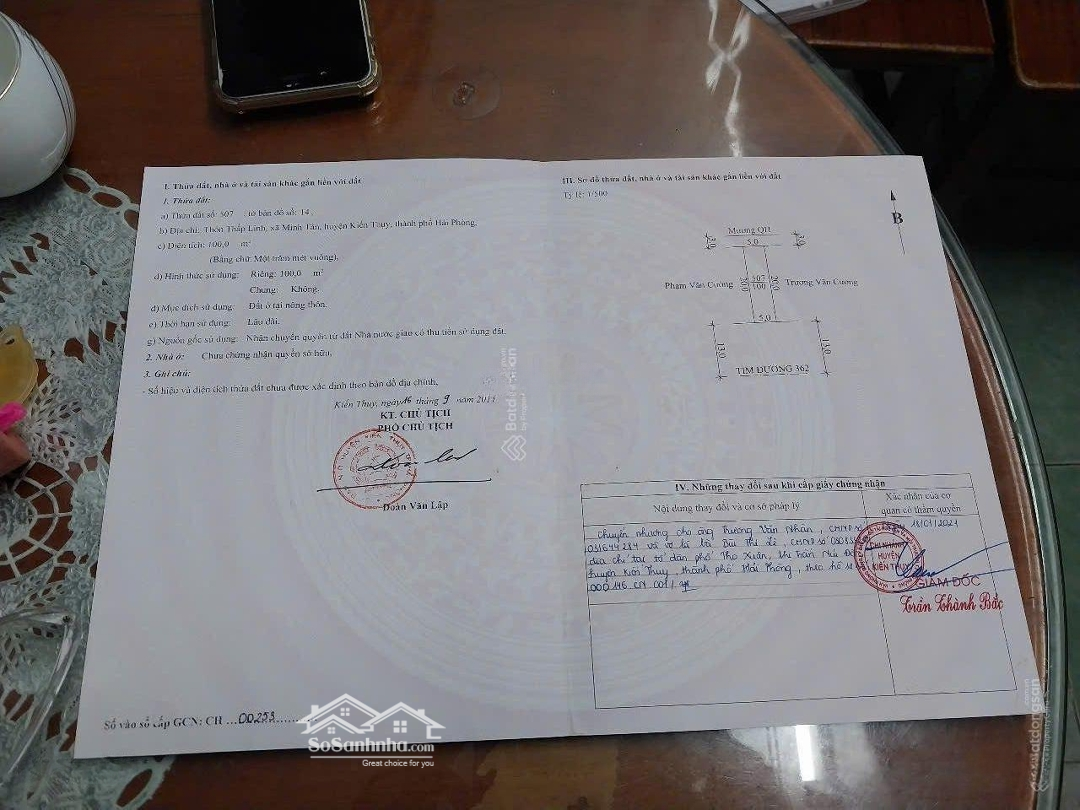 I. Thửa đất, nhà ở và tài sản khác gắn liền với đất
1. Thửa đất:
a) Thửa đất số: 507 tờ bản đồ số: 14,
b) Địa chỉ: Thôn Thấp Linh, xã Minh Tân, huyện Kiến Thụy, thành phố Hải Phòng,
c) Diện tích: 100,0 m²
(Bằng chữ: Một trăm mét vuông),
d) Hình thức sử dụng: Riêng: 100,0 m²
Chung: Không.
đ) Mục đích sử dụng: Đất ở tại nông thôn.
e) Thời hạn sử dụng: Lâu dài.
g) Nguồn gốc sử dụng: Nhận chuyển quyền từ đất Nhà nước giao có thu tiền sử dụng đất.
2. Nhà ở: Chưa chứng nhận quyền sở hữu.
3. Ghi chú:
- Số hiệu và diện tích thửa đất chưa được xác định theo bản đồ địa chính.
Kiến Thụy, ngày 16 tháng 9 năm 2011
KT. CHỦ TỊCH
PHÓ CHỦ TỊCH
Đoàn Văn Lập
Số vào sổ cấp GCN: CH ...00253
III. Sơ đồ thửa đất, nhà ở và tài sản khác gắn liền với đất
Tỷ lệ: 1/500
B
Mương QH
5,0
Phạm Văn Cường
507
100
Trương Văn Cường
5,0
13,0
13,0
TIM ĐƯỜNG 362
IV. Những thay đổi sau khi cấp giấy chứng nhận
Nội dung thay đổi và cơ sở pháp lý
Xác nhận của cơ quan có thẩm quyền
Chuyển nhượng cho ông Trương Văn Nhân, CMND số
031644284 và vợ là bà Bùi Thị Lê, CMND số
địa chỉ tại tổ dân phố Thọ Xuân, thị trấn Núi Đối
huyện Kiến Thụy, thành phố Hải Phòng, theo hồ sơ
000146.CN.001
CHI NHÁNH
HUYỆN
KIẾN THỤY
GIÁM ĐỐC
Trần Thành Bắc
Batdongsan
by PropertyGuru
Batdongsan
SoSanhnha.com
Great choice for you